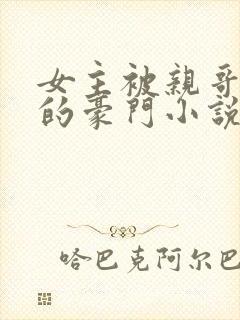 女主被親哥
的豪門小説
哈巴克阿尔巴